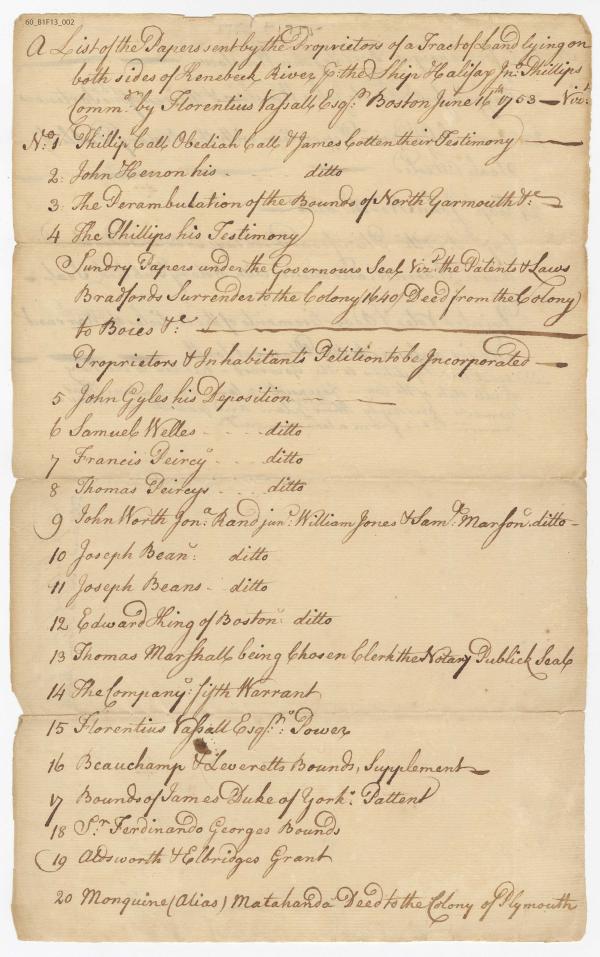 60_B1F13_002
A List of the Papers sent by the Proprietors of a Tract of Land lying on
both sides of Kenebeck River P: the Ship Halifax Jnº Phillips
Commdr by Florentius Vassall Esqr Boston June 16th 1753 — Vizt
No 1 Phillip Call Obediah Call & James Cotten their Testimony —
2: John Herron his - ditto
3 The Perambulation of the Bounds of North Yarmouth &c —
4 The Phillips his Testimony
Sundry Papers under the Governours Seal Vizt the Patents & Laws
Bradfords Surrender to the Colony 1640 Deed from the Colony
to Boies &c —
Proprietors & Inhabitants Petition to be Incorporated —
5 John Gyles his Deposition - - —
6 Samuel Welles - - - ditto
7 Francis Peircy - - ditto
8 Thomas Peircys - - ditto
9 John Worth Jona Rand junr William Jones & Saml Marson ditto -
10 Joseph Bean: ditto
11 Joseph Beans - ditto
12 Edward King of Boston ditto
13 Thomas Marshall being Chosen Clerk the Notary Publick Seal
14 The Companys fifth Warrant
15 Florentius Vassall Esqrs Power
16 Beauchamp & Leveretts Bounds, Supplement —
17 Bounds of James Duke of Yorks Pattent
18 Sr Ferdinando Georges Bounds
19 Aldsworth & Elbridges Grant
20 Monquine (Alias) Matahanda Deed to the Colony of Plymouth